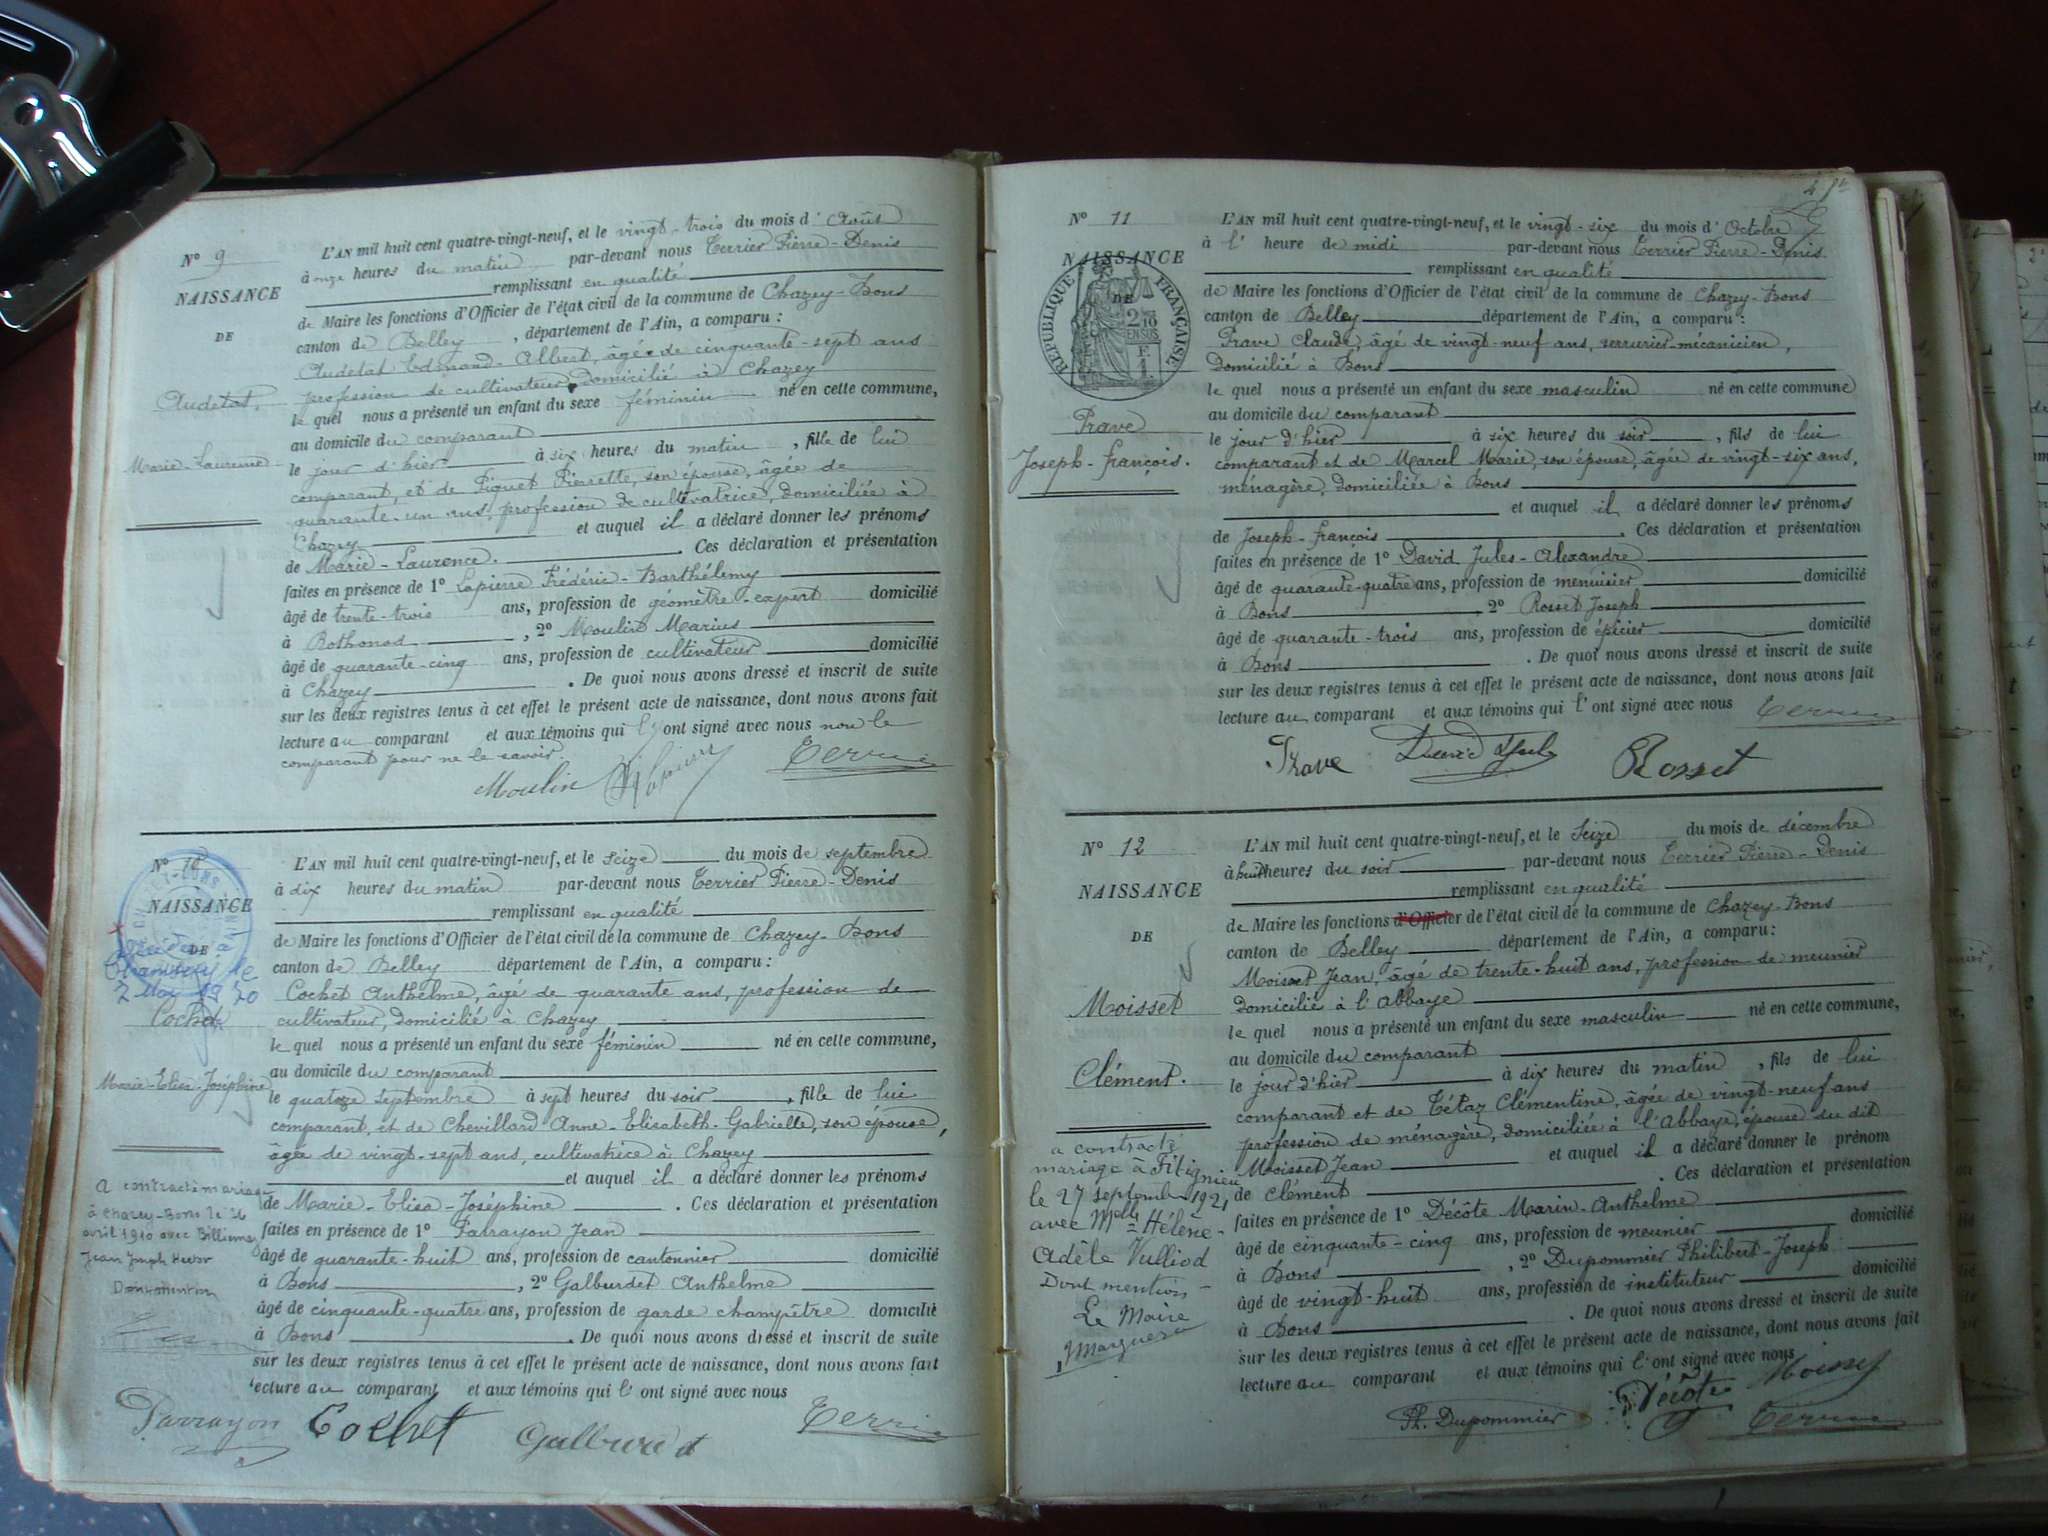 N° 9
NAISSANCE
DE
Audetat,
Marie-Laurence
L'AN mil huit cent quatre-vingt-neuf, et le vingt-trois du mois d'Août
à onze heures du matin par-devant nous Terrier Pierre-Denis
remplissant en qualité
de Maire les fonctions d'Officier de l'état civil de la commune de Chazey-Bons
canton de Belley, département de l'Ain, a comparu :
Audetat Edmond-Albert, âgé de cinquante-sept ans
profession de cultivateur, domicilié à Chazey
le quel nous a présenté un enfant du sexe féminin né en cette commune,
au domicile du comparant
le jour d'hier à six heures du matin, fille de lui
comparant, et de Piquet Pierrette, son épouse, âgée de
quarante-un ans, profession de cultivatrice, domiciliée à
Chazey et auquel il a déclaré donner les prénoms
de Marie-Laurence. Ces déclaration et présentation
faites en présence de 1° Lapierre Frédéric-Barthélemy
âgé de trente-trois ans, profession de géomètre-expert domicilié
à Rothonod, 2° Moulin Marius
âgé de quarante-cinq ans, profession de cultivateur domicilié
à Chazey. De quoi nous avons dressé et inscrit de suite
sur les deux registres tenus à cet effet le présent acte de naissance, dont nous avons fait
lecture au comparant et aux témoins qui ont signé avec nous non le
comparant pour ne le savoir.
Moulin Lapierre Terrier
N° 10
NAISSANCE
DE
Décédée à
Chambéry le
2 Nov 1970
Cochet
Marie-Elisa-Joséphine
A contracté mariage
à Chazey-Bons le 26
avril 1910 avec Billiemaz
Jean Joseph
Dont mention
L'AN mil huit cent quatre-vingt-neuf, et le Seize du mois de septembre
à dix heures du matin par-devant nous Terrier Pierre-Denis
remplissant en qualité
de Maire les fonctions d'Officier de l'état civil de la commune de Chazey-Bons
canton de Belley département de l'Ain, a comparu :
Cochet Anthelme, âgé de quarante ans, profession de
cultivateur, domicilié à Chazey
le quel nous a présenté un enfant du sexe féminin né en cette commune,
au domicile du comparant
le quatoze septembre à sept heures du soir, fille de lui
comparant, et de Chevillard Anne-Elisabeth-Gabrielle, son épouse,
âgée de vingt-sept ans, cultivatrice à Chazey
et auquel il a déclaré donner les prénoms
de Marie-Elisa-Joséphine. Ces déclaration et présentation
faites en présence de 1° Parrayon Jean
âgé de quarante-huit ans, profession de cantonnier domicilié
à Bons, 2° Galburdet Anthelme
âgé de cinquante-quatre ans, profession de garde champêtre domicilié
à Bons. De quoi nous avons dressé et inscrit de suite
sur les deux registres tenus à cet effet le présent acte de naissance, dont nous avons fait
lecture au comparant et aux témoins qui l'ont signé avec nous
Parrayon Cochet Terrier
N° 11
NAISSANCE
DE
RÉPUBLIQUE FRANÇAISE
Prave
Joseph-françois.
L'AN mil huit cent quatre-vingt-neuf, et le vingt-six du mois d'Octobre
à l'heure de midi par-devant nous Terrier Pierre-Denis
remplissant en qualité
de Maire les fonctions d'Officier de l'état civil de la commune de Chazey-Bons
canton de Belley département de l'Ain, a comparu :
Prave Claude, âgé de vingt-neuf ans, serrurier-mécanicien,
Domicilié à Bons
le quel nous a présenté un enfant du sexe masculin né en cette commune
au domicile du comparant
le jour d'hier à six heures du soir, fils de lui
comparant et de Marcel Marie, son épouse, âgée de vingt-six ans,
ménagère, domiciliée à Bons
et auquel il a déclaré donner les prénoms
de Joseph-françois. Ces déclaration et présentation
faites en présence de 1° David Jules-Alexandre
âgé de quarante-quatre ans, profession de menuisier domicilié
à Bons, 2° Rosset Joseph
âgé de quarante-trois ans, profession de épicier domicilié
à Bons. De quoi nous avons dressé et inscrit de suite
sur les deux registres tenus à cet effet le présent acte de naissance, dont nous avons fait
lecture au comparant et aux témoins qui l'ont signé avec nous Terrier
Prave David Jules Rosset
N° 12
NAISSANCE
DE
Moisset
Clément.
a contracté
mariage à Fitignieu
le 27 septembre 1921
avec Melle Hélène-
Adèle Vulliod
Dont mention
Le Maire
L'AN mil huit cent quatre-vingt-neuf, et le Seize du mois de décembre
à huit heures du soir par-devant nous Terrier Pierre-Denis
remplissant en qualité
de Maire les fonctions d'Officier de l'état civil de la commune de Chazey-Bons
canton de Belley département de l'Ain, a comparu :
Moisset Jean, âgé de trente-huit ans, profession de meunier
domicilié à l'Abbaye
le quel nous a présenté un enfant du sexe masculin né en cette commune,
au domicile du comparant
le jour d'hier à dix heures du matin, fils de lui
comparant et de Tétaz Clémentine, âgée de vingt-neuf ans
profession de ménagère, domiciliée à l'Abbaye, épouse du dit
Moisset Jean et auquel il a déclaré donner le prénom
de Clément. Ces déclaration et présentation
faites en présence de 1° Décôte Marin-Anthelme
âgé de cinquante-cinq ans, profession de meunier domicilié
à Bons, 2° Dupommier Philibert-Joseph
âgé de vingt-huit ans, profession de instituteur domicilié
à Bons. De quoi nous avons dressé et inscrit de suite
sur les deux registres tenus à cet effet le présent acte de naissance, dont nous avons fait
lecture au comparant et aux témoins qui l'ont signé avec nous
Ph. Dupommier Décôte Moisset Terrier